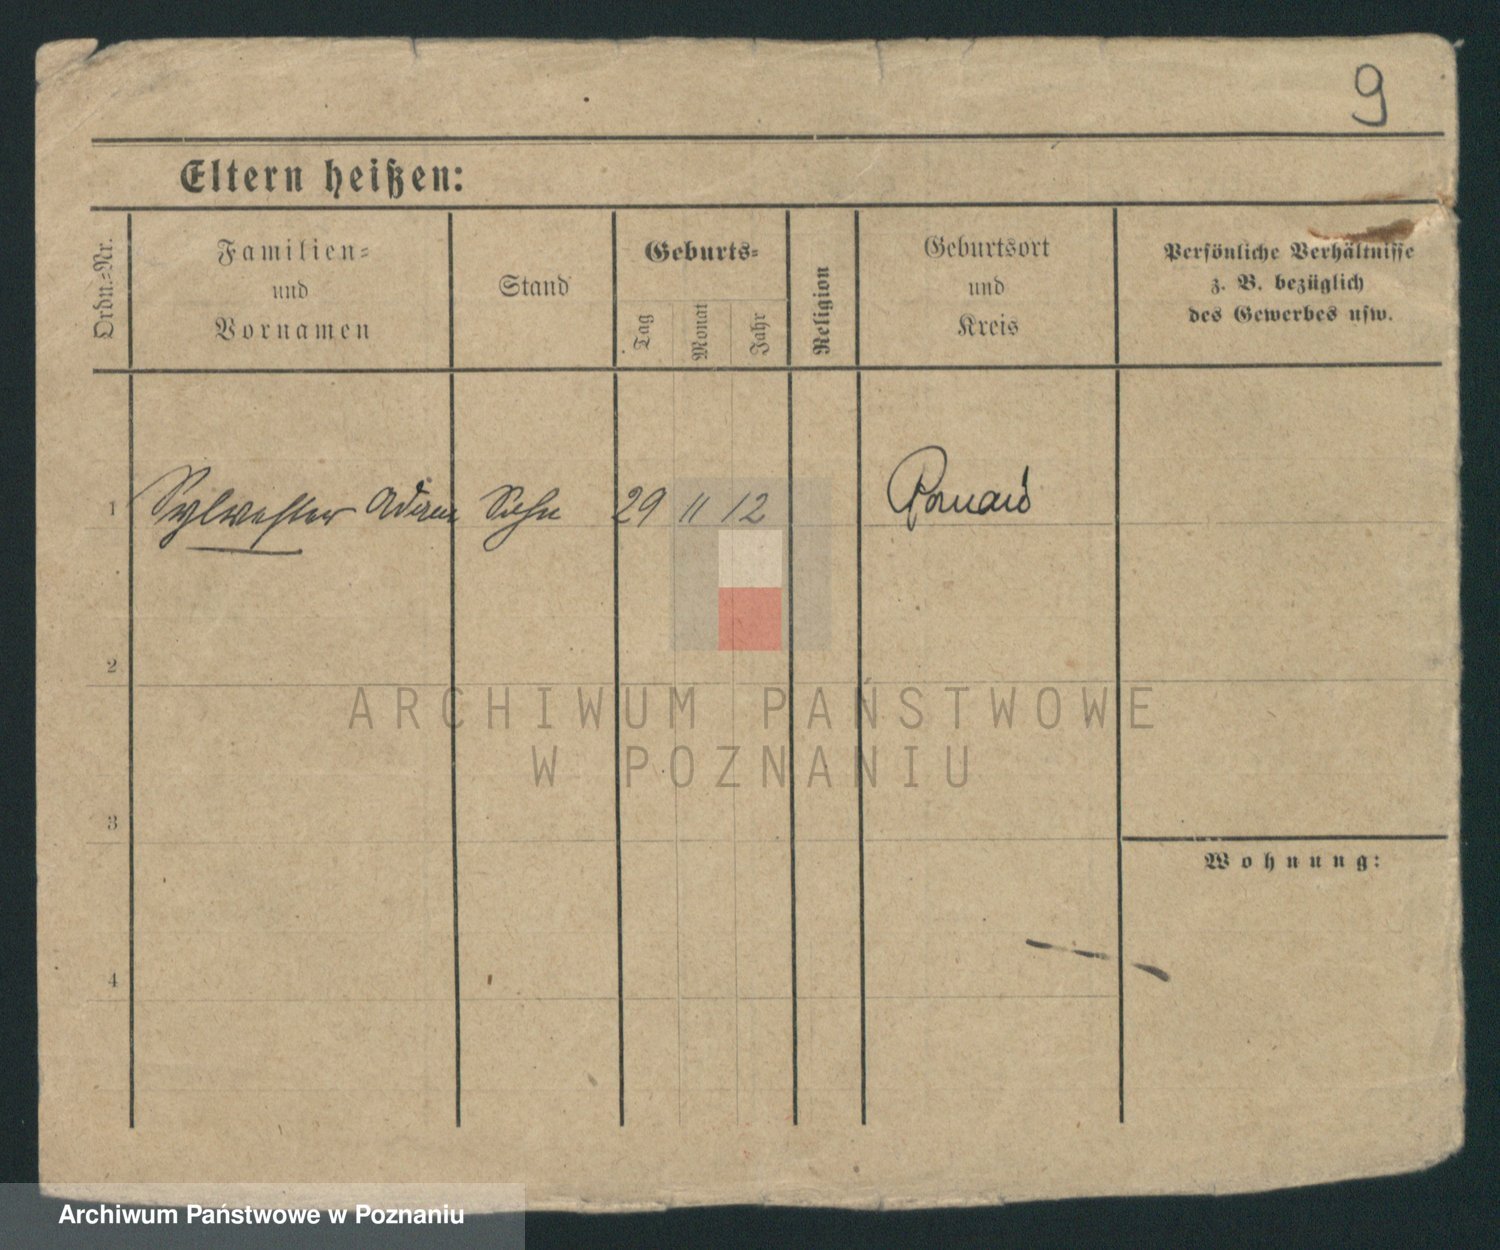 9
Eltern heißen:
Ordn.-Nr.
Familien-
und
Vornamen
Stand
Geburts-
Tag
Monat
Jahr
Religion
Geburtsort
und
Kreis
Persönliche Verhältnisse
z. B. bezüglich
des Gewerbes usw.
1 Sylvester Adam Sohn 29 11 12
2
3
4
Wohnung:
ARCHIWUM PAŃSTWOWE
W POZNANIU
Archiwum Państwowe w Poznaniu